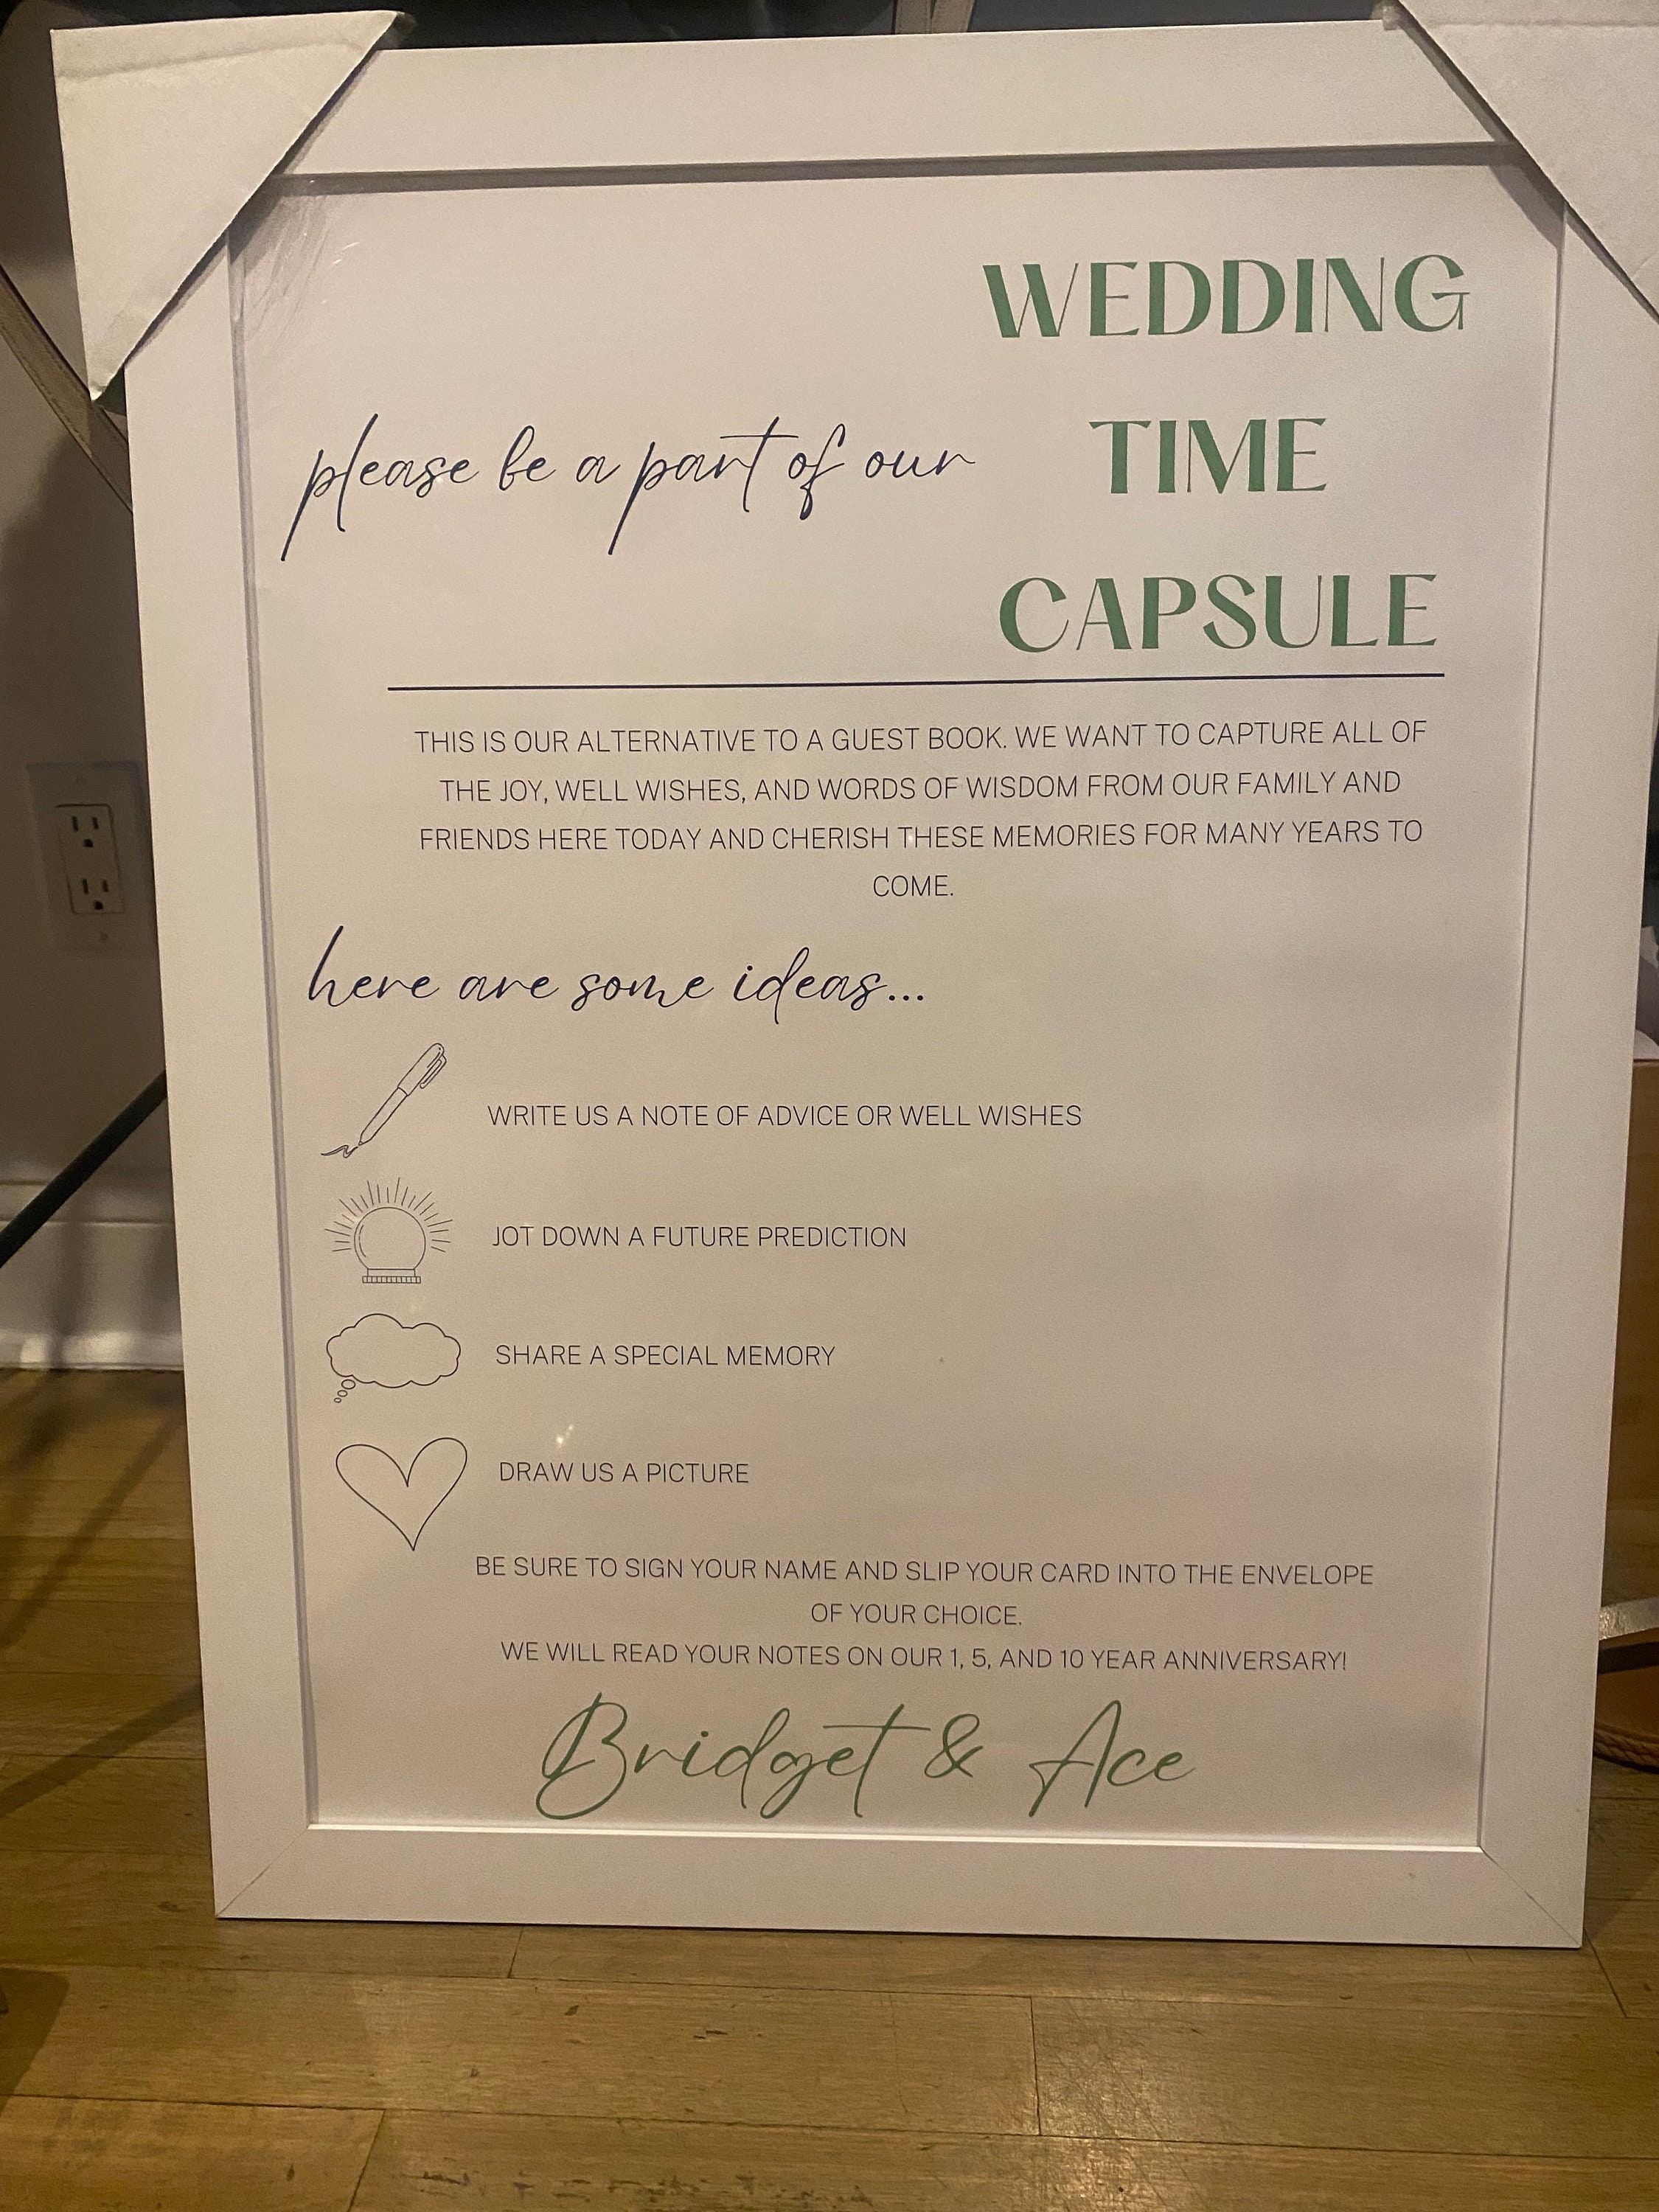 WEDDING
please be a part of our TIME
CAPSULE
THIS IS OUR ALTERNATIVE TO A GUEST BOOK. WE WANT TO CAPTURE ALL OF
THE JOY, WELL WISHES, AND WORDS OF WISDOM FROM OUR FAMILY AND
FRIENDS HERE TODAY AND CHERISH THESE MEMORIES FOR MANY YEARS TO
COME.
here are some ideas...
WRITE US A NOTE OF ADVICE OR WELL WISHES
JOT DOWN A FUTURE PREDICTION
SHARE A SPECIAL MEMORY
DRAW US A PICTURE
BE SURE TO SIGN YOUR NAME AND SLIP YOUR CARD INTO THE ENVELOPE
OF YOUR CHOICE.
WE WILL READ YOUR NOTES ON OUR 1, 5, AND 10 YEAR ANNIVERSARY!
Bridget & Ace